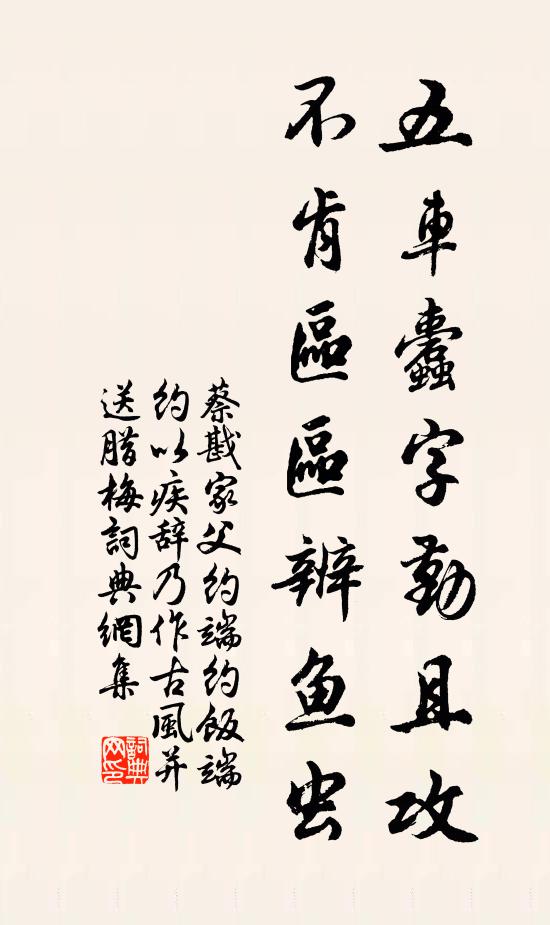 五車蠹字勤且攻
不肯區區辨鱼虫
蔡戡家父约端约飯端
约以疾辞乃作古風并
送腊梅詞典網集
詞典
网印